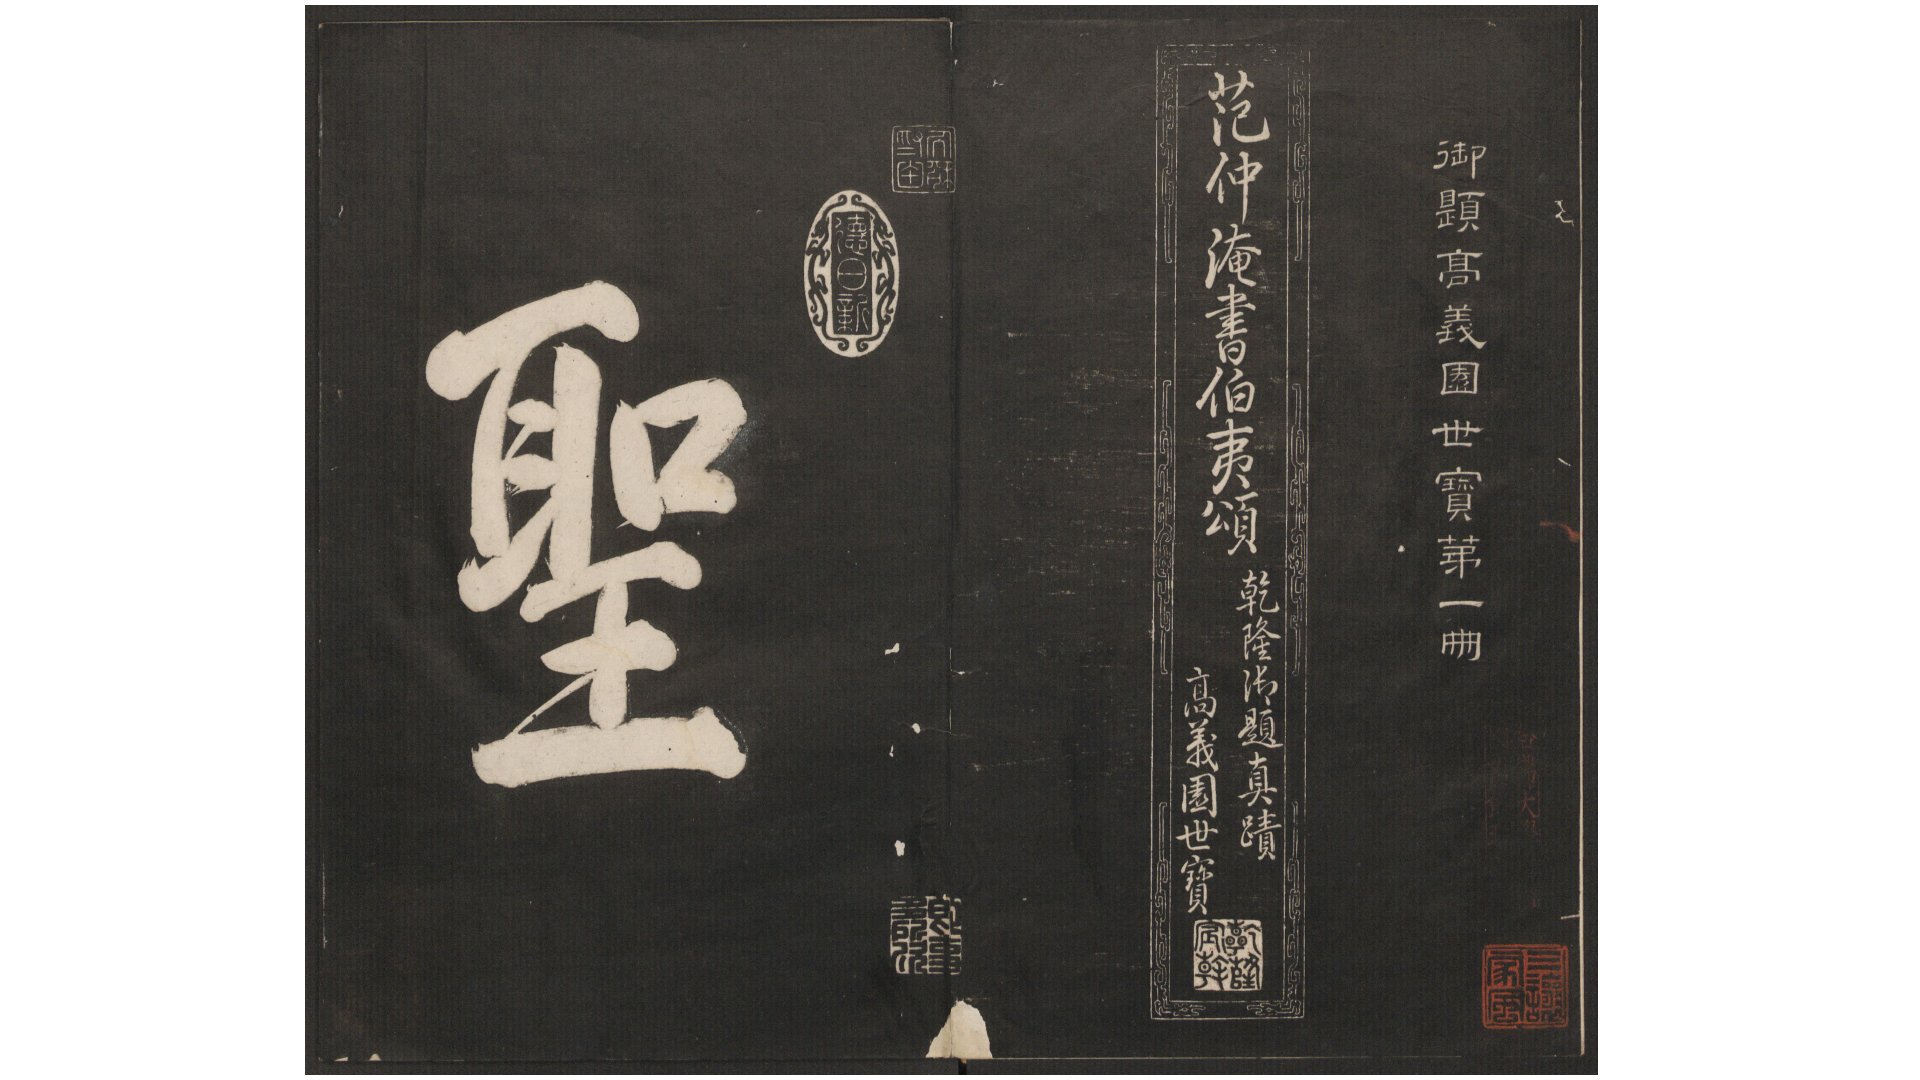 御題高義園世寶第一冊
范仲淹書伯夷頌
乾隆御題真蹟
高義園世寶
乾隆宸翰
德日新
聖